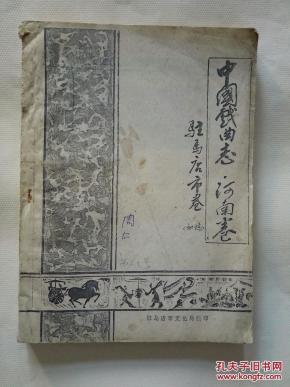 中国戏曲志·河南卷
驻马店市卷
(初稿)
周仁
驻马店市文化局编印
孔夫子旧书网